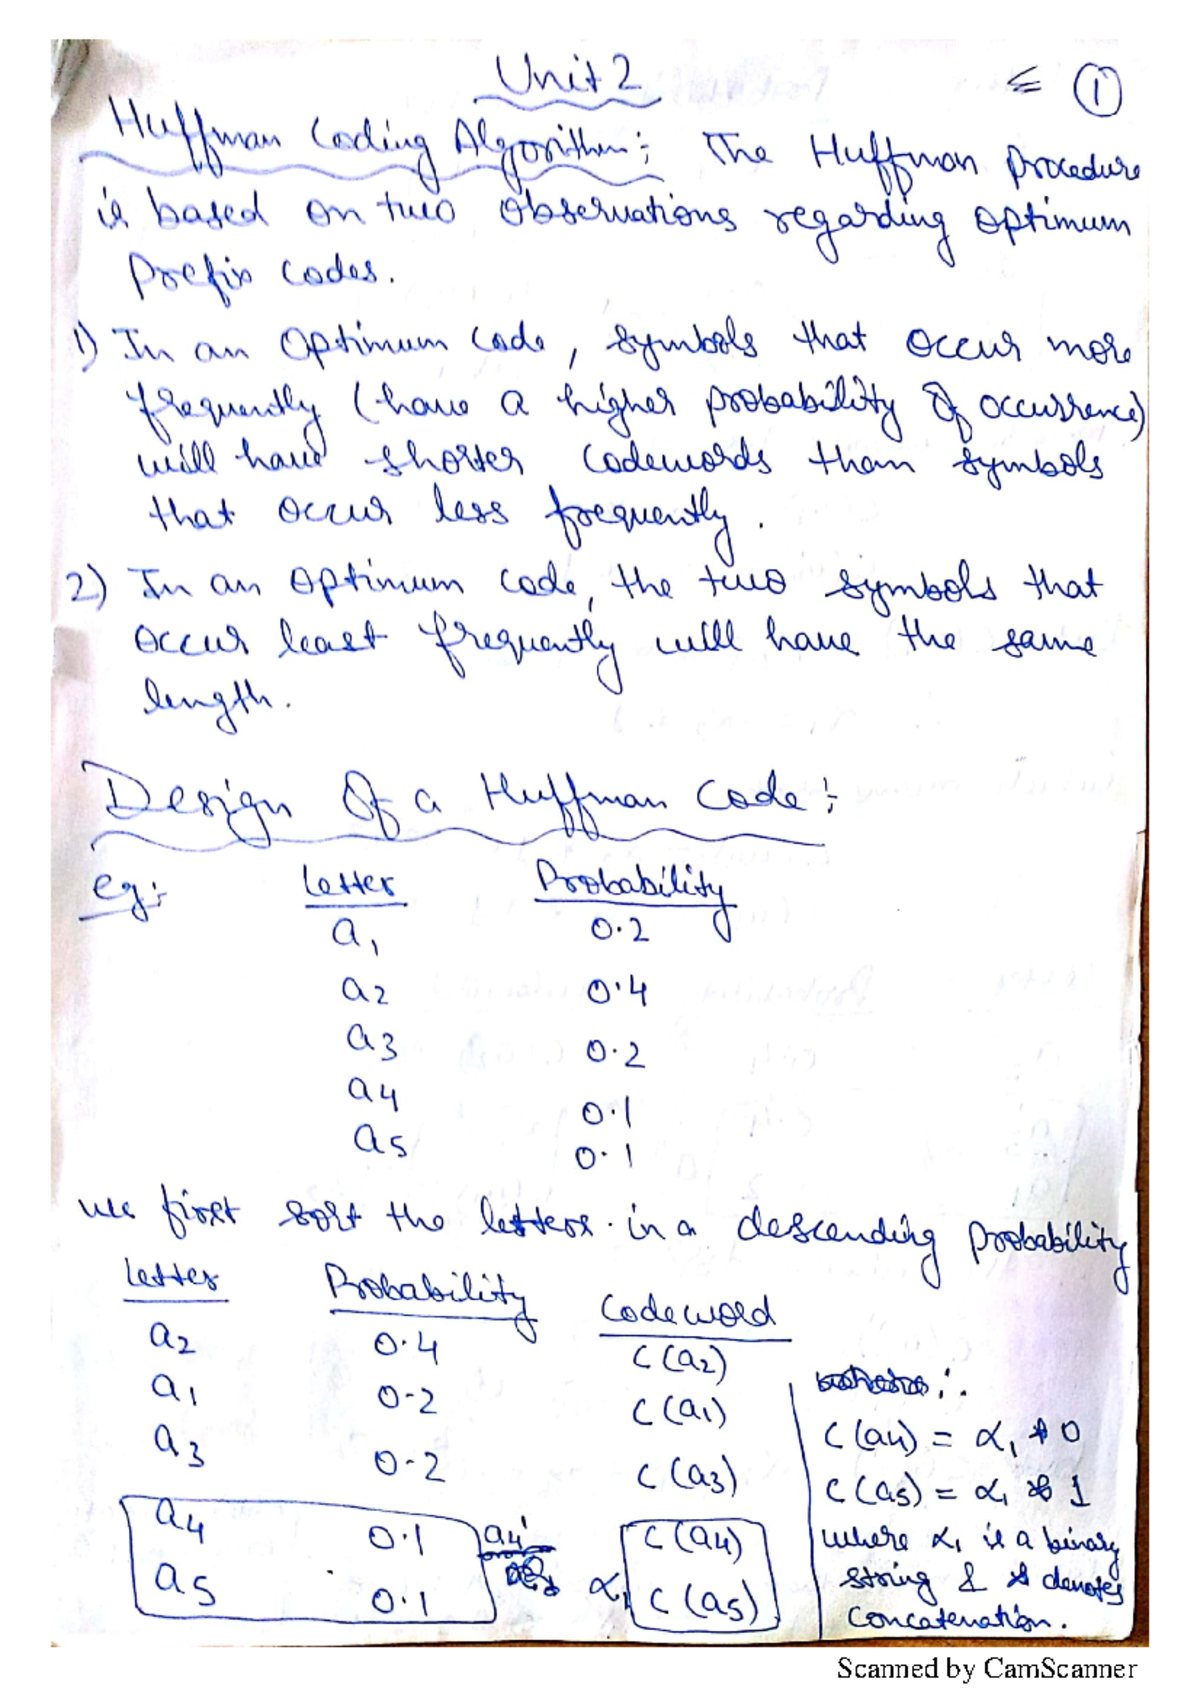 Unit 2
①
Huffman Coding Algorithm:- The Huffman Procedure
is based on two observations regarding optimum
Prefix codes.
1) In an optimum code, symbols that occur more
frequently (have a higher probability of occurrence)
will have shorter codewords than symbols
that occur less frequently.
2) In an optimum code, the two symbols that
occur least frequently will have the same
length.
Design Of a Huffman Code:-
eg:- Letter Probability
a1 0.2
a2 0.4
a3 0.2
a4 0.1
a5 0.1
we first sort the letters in a descending probability
Letter Probability Codeword
a2 0.4 C(a2)
a1 0.2 C(a1)
a3 0.2 C(a3)
a4 0.1 a4' C(a4)
a5 0.1 α1 C(a5)
where:.
C(a4) = α1 * 0
C(a5) = α1 * 1
where α1 is a binary
string & * denotes
concatenation.
Scanned by CamScanner